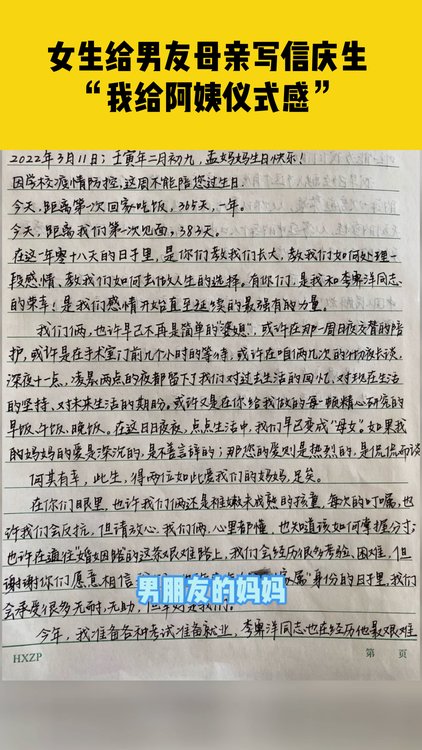 女生给男友母亲写信庆生
“我给阿姨仪式感”
2022年3月11日；壬寅年二月初九，孟妈妈生日快乐！
因学校疫情防控，这周不能陪您过生日.
今天，距离第一次回家吃饭，365天，一年。
今天，距离我们第一次见面，383天。
在这一年零十八天的日子里，是你们教我们长大，教我们如何处理一
段感情、教我们如何去做人生的选择。有你们，是我和李 洋同志
的荣幸！是我们感情开始直至延续的最强有的力量。
我们俩，也许早已不再是简单的“婆媳”，或许在那一周日夜交替的陪
护，或许是在手术室门前几个小时的等待，或许在咱俩几次的彻夜长谈，
深夜十一点、凌晨两点的夜都留下了我们对过去生活的回忆、对现在生活
的坚持、对未来生活的期盼。或许又是在你给我做的每一顿精心研究的
早饭、午饭、晚饭。在这日日夜夜，点点生活中，我们早已变成“母女”。如果我
的妈妈的爱是深沉的，是不善言辞的；那您的爱则是热烈的，是侃侃而谈
何其有幸，此生，得两位如此爱我们的妈妈，足矣。
在你们眼里，也许我们俩还是稚嫩未成熟的孩童，每次的叮嘱，也
许我们会反抗，但请放心，我们俩，心里都懂，也知道该如何掌握分寸；
也许在通往“婚姻路的这条艰难路上，我们会经历很多考验、困难，但
谢谢你们愿意相信 属”身份的日子里，我们
会承受很多无耐、无助，但 我们。
男朋友的妈妈
今年，我准备各种考试准备就业，李 洋同志也在经历他最艰难
HXZP
第 页